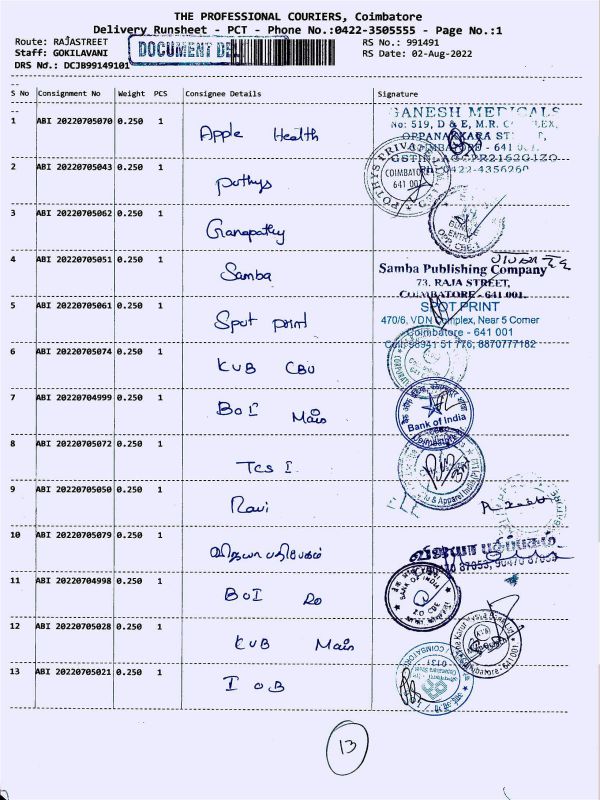 THE PROFESSIONAL COURIERS, Coimbatore
Delivery Runsheet - PCT - Phone No.:0422-3505555 - Page No.:1
Route: RAJASTREET RS No.: 991491
Staff: GOKILAVANI DOCUMENT RS Date: 02-Aug-2022
DRS No.: DCJB99149101
S No Consignment No Weight PCS Consignee Details Signature
1 ABI 20220705070 0.250 1 Apple Health
GANESH MEDICALS
No: 519, D & E, M.R.
OPPANAKKARA
641
0422-4356260
2 ABI 20220705043 0.250 1 Pothys
POTHYS COIMBATORE 641 001
3 ABI 20220705062 0.250 1 Ganapathy
ENTRY
4 ABI 20220705051 0.250 1 Samba
Samba Publishing Company
73, RAJA STREET,
COIMBATORE - 641 001.
5 ABI 20220705061 0.250 1 Spot print
SPOT PRINT
470/6, VDN Complex, Near 5 Corner
Coimbatore - 641 001
8870777182
6 ABI 20220705074 0.250 1 KVB CBU
7 ABI 20220704999 0.250 1 BOI Main
Bank of India
Coimbatore
8 ABI 20220705072 0.250 1 TCS I
9 ABI 20220705050 0.250 1 Ravi
10 ABI 20220705079 0.250 1
11 ABI 20220704998 0.250 1 BOI ZO
BANK OF INDIA
12 ABI 20220705028 0.250 1 KVB Main
641 001
13 ABI 20220705021 0.250 1 IOB
0131
13